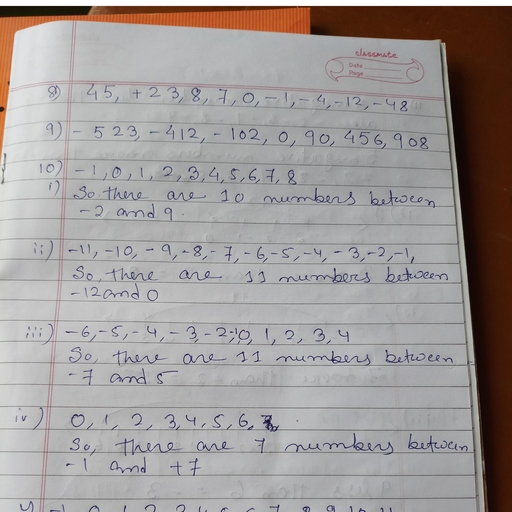 classmate
Date
Page
8) 45, +23, 8, 7, 0, -1, -4, -12, -48
9) -523, -412, -102, 0, 90, 456, 908
10) -1, 0, 1, 2, 3, 4, 5, 6, 7, 8
i) So there are 10 numbers between
-2 and 9
ii) -11, -10, -9, -8, -7, -6, -5, -4, -3, -2, -1,
So, there are 11 numbers between
-12 and 0
iii) -6, -5, -4, -3, -2, -1, 0, 1, 2, 3, 4
So, there are 11 numbers between
-7 and 5
iv) 0, 1, 2, 3, 4, 5, 6,
So, there are 7 numbers between
-1 and +7